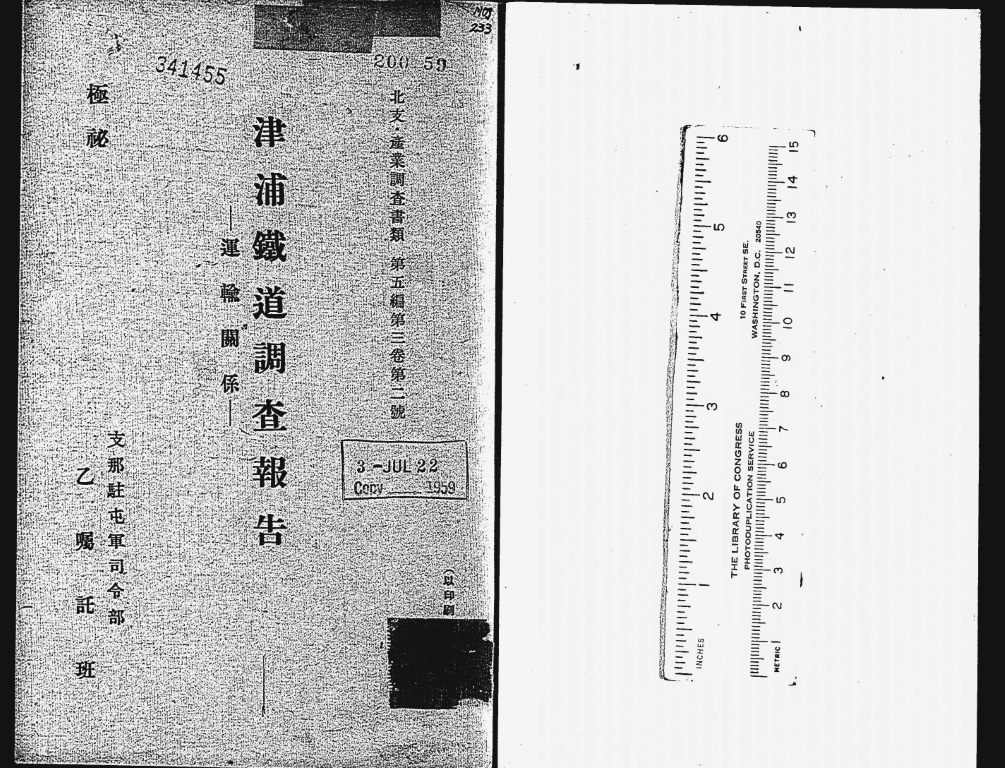 NOJ
233
200 59
341455
北支・產業調查書類 第五編第三卷第二號
津浦鐵道調查報告
—運輸關係—
極祕
3-JUL 22
Copy 1959
以印刷
支那駐屯軍司令部
乙囑託班
10 FIRST STREET SE.
WASHINGTON, D.C. 20540
THE LIBRARY OF CONGRESS
PHOTODUPLICATION SERVICE
INCHES 1 2 3 4 5 6
METRIC 1 2 3 4 5 6 7 8 9 10 11 12 13 14 15